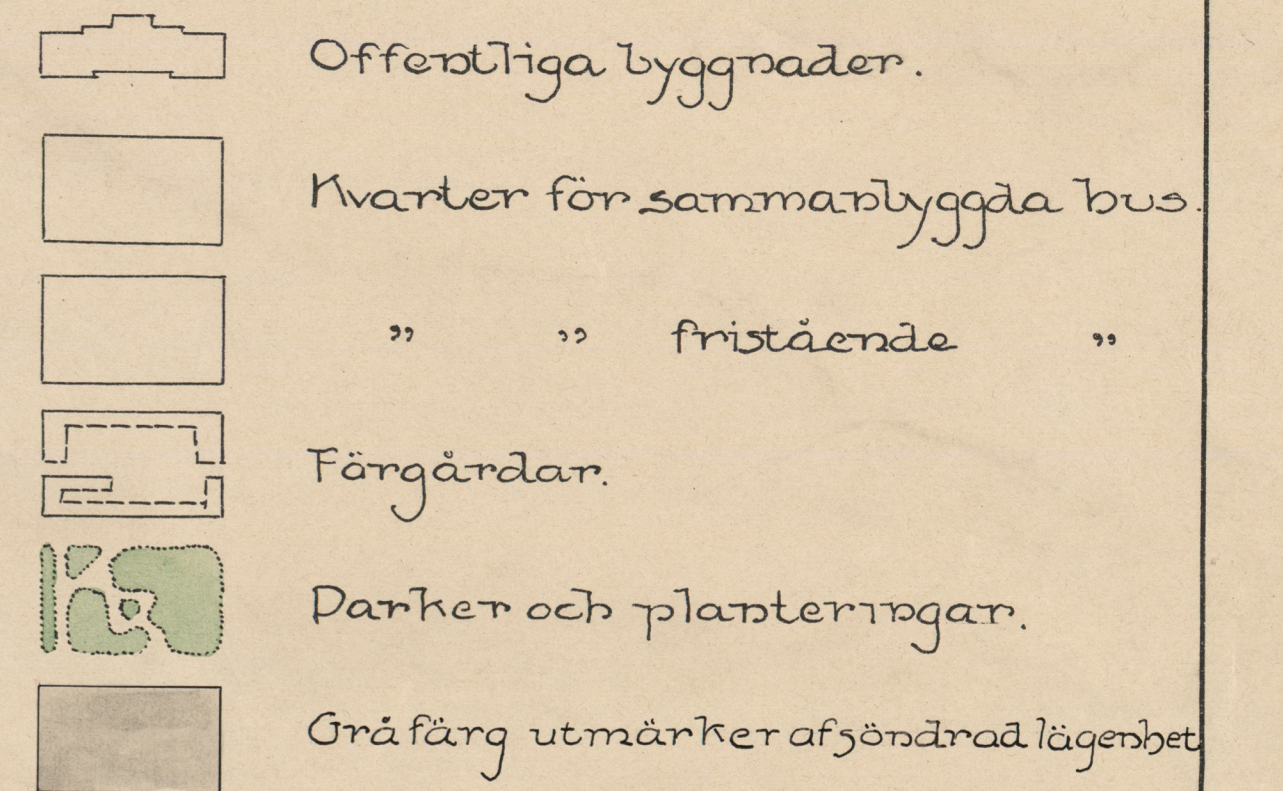 Offentliga byggnader.
Kvarter för sammanbyggda hus.
” ” fristående ”
Förgårdar.
Parker och planteringar.
Grå färg utmärker afsöndrad lägenhet